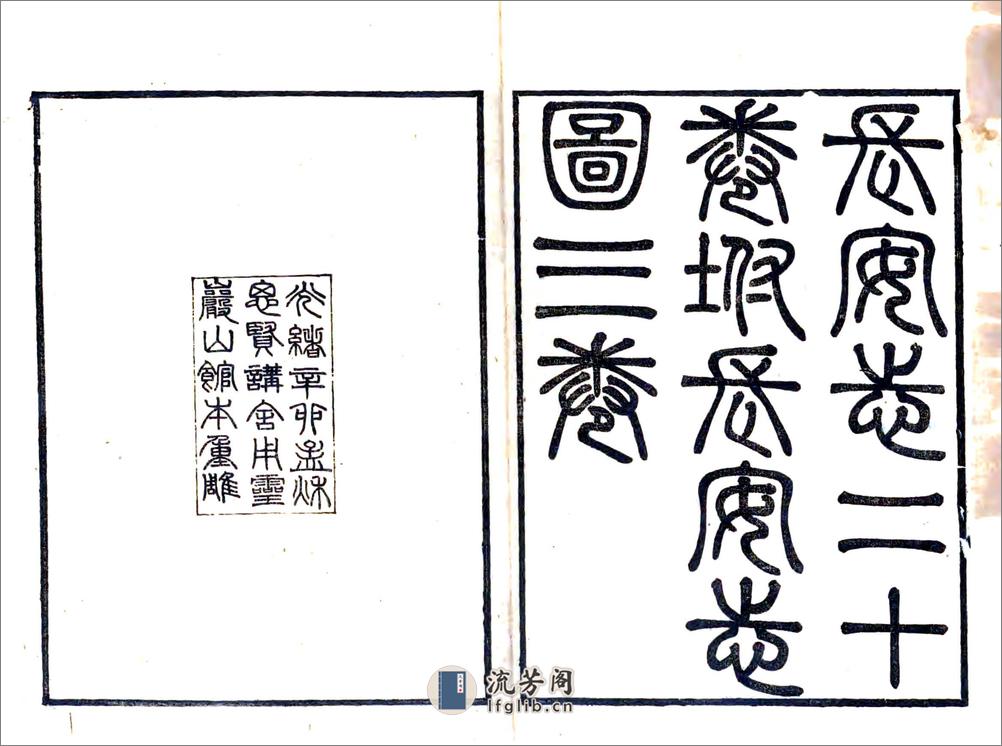 長安志二十
卷坿長安志
圖三卷
光緒辛卯孟秋
思賢講舍用靈
巖山館本重雕
流芳阁
lfglib.cn